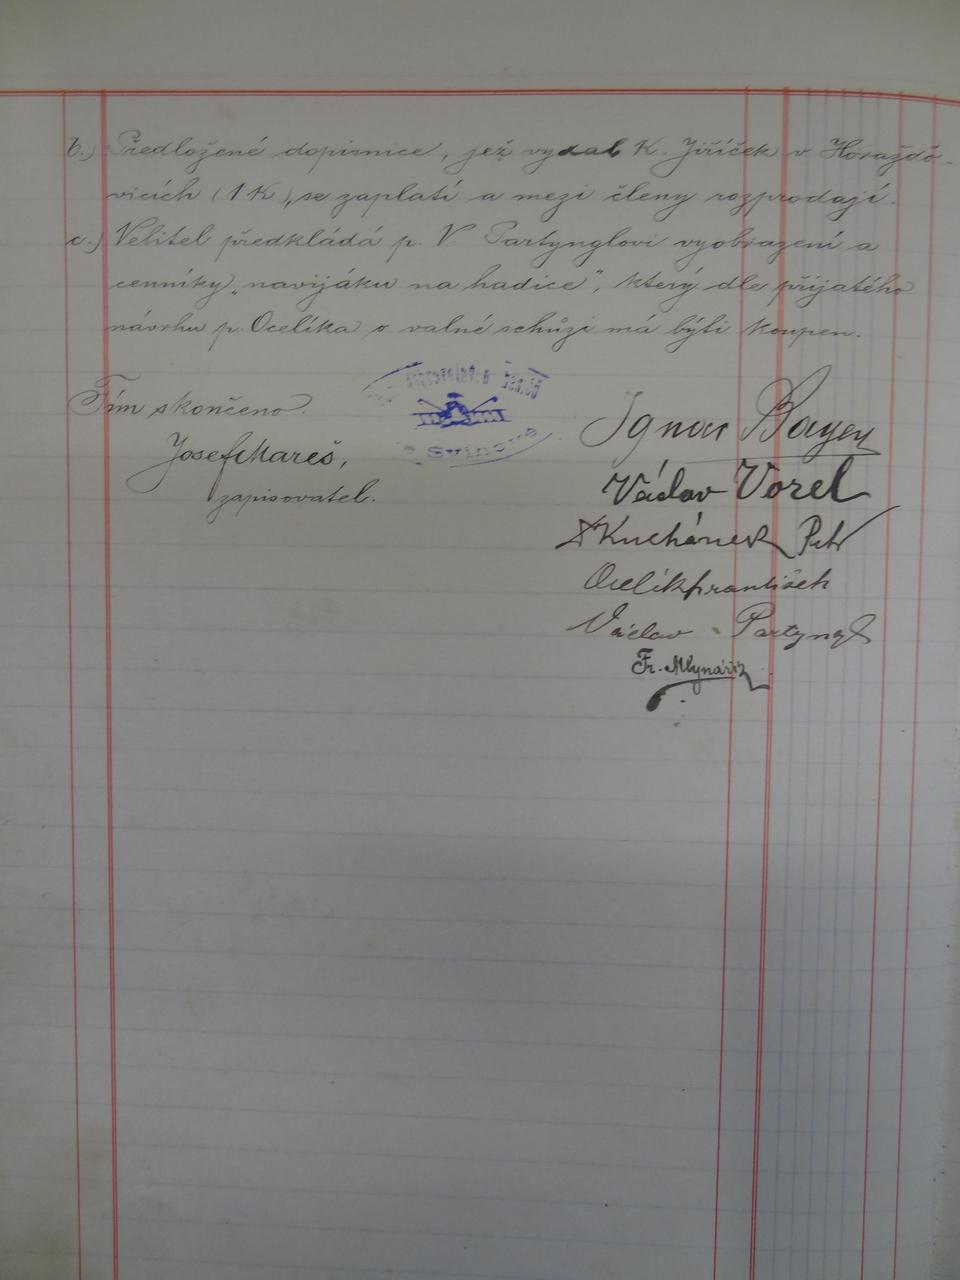 b.) Předložené dopisnice, jež vydal K. Jiříček v Horažďo-
vicích (1 K), se zaplatí a mezi členy rozprodají.
c.) Velitel předkládá p. V. Partynglovi vyobrazení a
cenníky „navijáku na hadice", který dle přijatého
návrhu p. Ocelíka v valné schůzi má býti koupen.
Tím skončeno.
Josef Mareš,
zapisovatel.
Ignac Bayer
Václav Vorel
Kuchánek Petr
Ocelík František
Václav Partyngl
Fr. Mlynařík